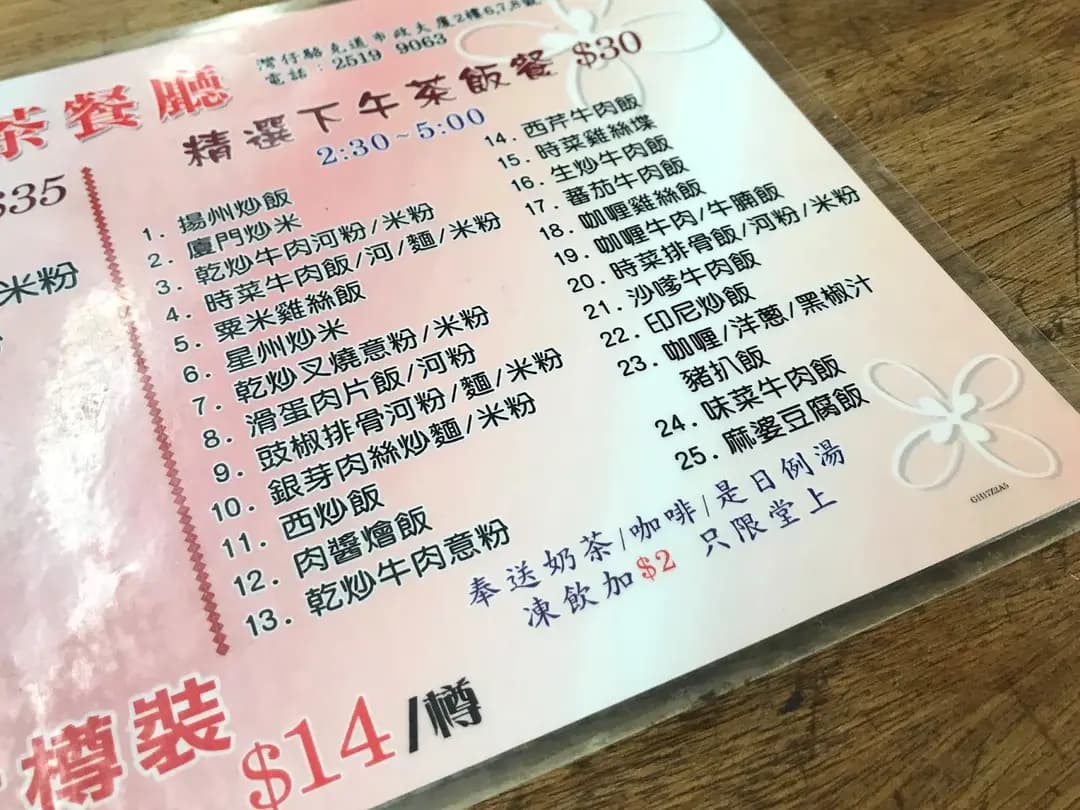 灣仔駱克道市政大廈2樓6,7,8號
電話：2519 9063
茶餐廳
精選下午茶飯餐 $30
2:30~5:00
$35
米粉
1. 揚州炒飯
2. 廈門炒米
3. 乾炒牛肉河粉/米粉
4. 時菜牛肉飯/河/麵/米粉
5. 粟米雞絲飯
6. 星州炒米
7. 乾炒叉燒意粉/米粉
8. 滑蛋肉片飯/河粉
9. 豉椒排骨河粉/麵/米粉
10. 銀芽肉絲炒麵/米粉
11. 西炒飯
12. 肉醬燴飯
13. 乾炒牛肉意粉
14. 西芹牛肉飯
15. 時菜雞絲堞
16. 生炒牛肉飯
17. 蕃茄牛肉飯
18. 咖喱雞絲飯
19. 咖喱牛肉/牛腩飯
20. 時菜排骨飯/河粉/米粉
21. 沙嗲牛肉飯
22. 印尼炒飯
23. 咖喱/洋蔥/黑椒汁
豬扒飯
24. 味菜牛肉飯
25. 麻婆豆腐飯
奉送奶茶/咖啡/是日例湯
凍飲加$2 只限堂上
樽裝
$14/樽